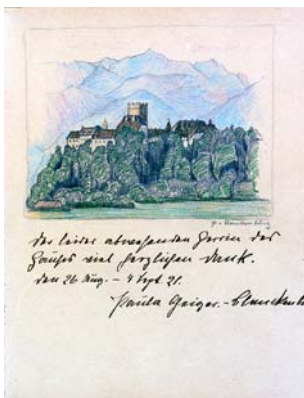 der leider abwesenden Herrin des
Hauses viel herzlichen Dank.
den 26 Aug. – 4 Sept. 21.
Paula Geiger.-Blanckenb